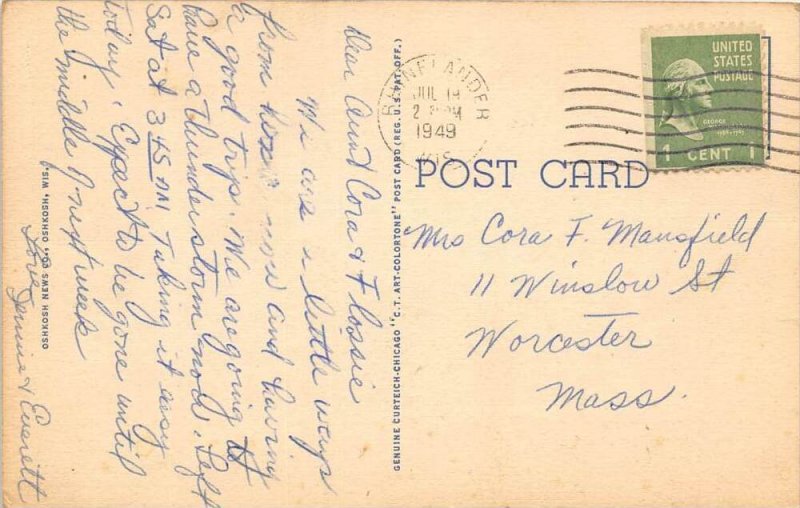 Dear Aunt Cora & Flossie
We are a little ways
from home now and having
a good trip. We are going to
have a thunderstorm now. Left
Sat at 3 45 AM. Taking it easy
today. Expect to be gone until
the middle of next week
Love
Jennie & Everett
OSHKOSH NEWS CO., OSHKOSH, WIS.
GENUINE CURTEICH-CHICAGO "C.T. ART-COLORTONE" POST CARD (REG. U.S. PAT. OFF.)
RHINELANDER
JUL 18
PM
1949
WIS
UNITED
STATES
POSTAGE
GEORGE
1 CENT 1
POST CARD
Mrs Cora F. Mansfield
11 Winslow St
Worcester
Mass.